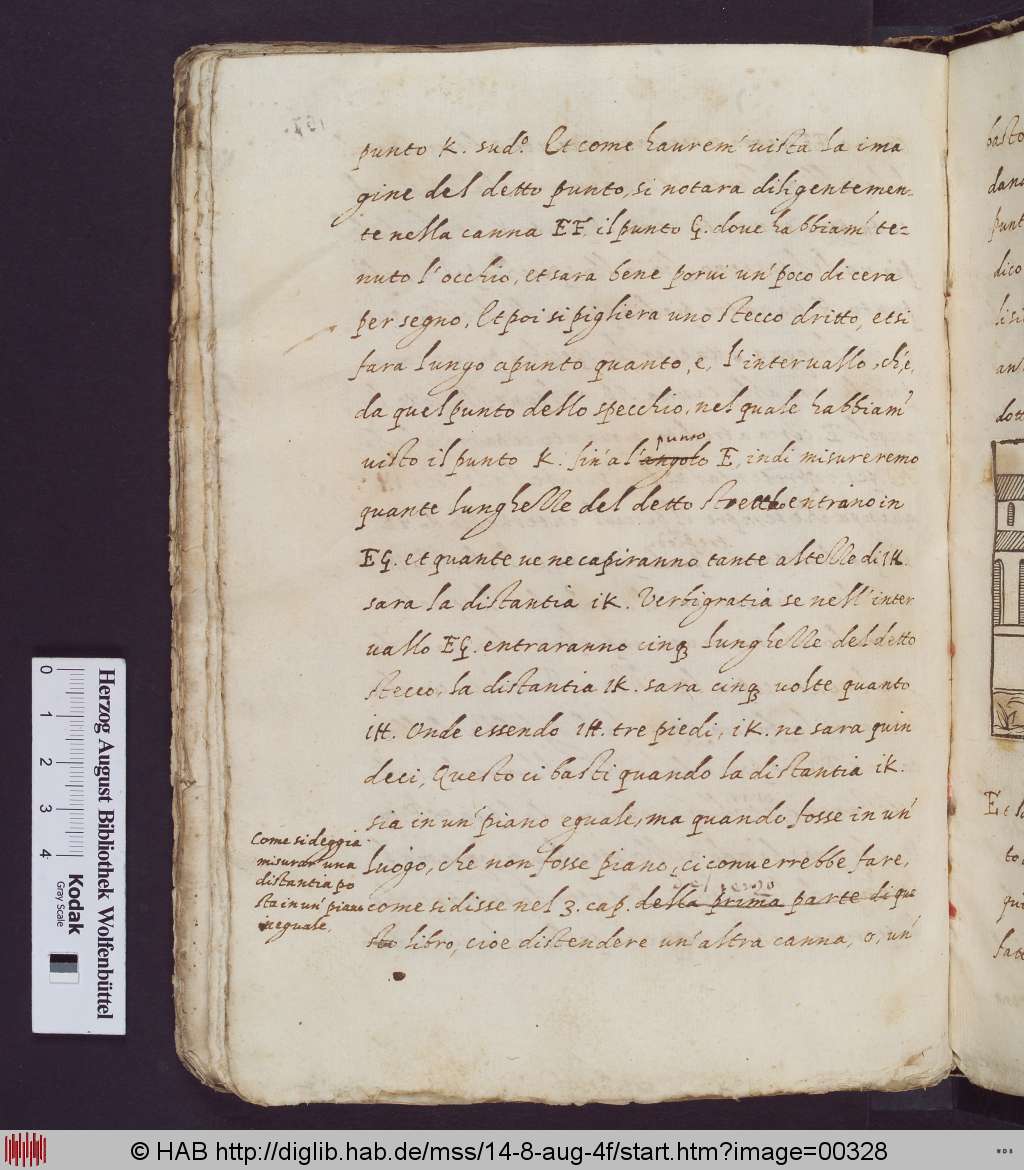 punto K. sud.º Et come haurem' vista la ima
gine del detto punto, si notara diligentemen-
te nella canna EF, il punto G. dove habbiam' te=
nuto l'occhio, et sara bene porui un' poco di cera
per segno, Et poi si pigliera uno stecco dritto, et si
fara lungo apunto quanto, e, l'intervallo, ch'e,
da quel punto dello specchio, nel quale habbiam'
punto
visto il punto K. sin' al'angolo E, indi misureremo
quante lunghesse del detto entrino in
EG. et quante ve ne capiranno tante altesse di IK.
sara la distantia iK. Verbigratia se nell'inter
vallo EG. entraranno cinq3 lunghesse del detto
stecco, la distantia IK. sara cinq3 volte quanto
iH. Onde essendo IH. tre piedi, iK. ne sara quin
deci, Questo ci basti quando la distantia iK.
sia in un' piano eguale, ma quando fosse in un'
luogo, che non fosse piano, ci conuerrebbe fare,
come si disse nel 3. cap. della prima parte di que
sto libro, cioe distendere un'altra canna, o, un'
Come si deggia
misurar una
distantia po
sta in un' piano
ineguale.
basto
dana
punt
dico
lisi
an
dott
Et
to
qui
fatt
0 1 2 3 4
Herzog August Bibliothek Wolfenbüttel
Kodak
Gray Scale
© HAB http://diglib.hab.de/mss/14-8-aug-4f/start.htm?image=00328